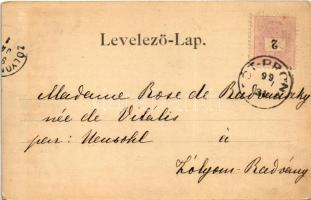 Levelező-Lap.
2
ZÓLYOM
99
Madame Rose de Radvánszky
née de Vitális
par: Neusohl à
Zólyom-Radvány